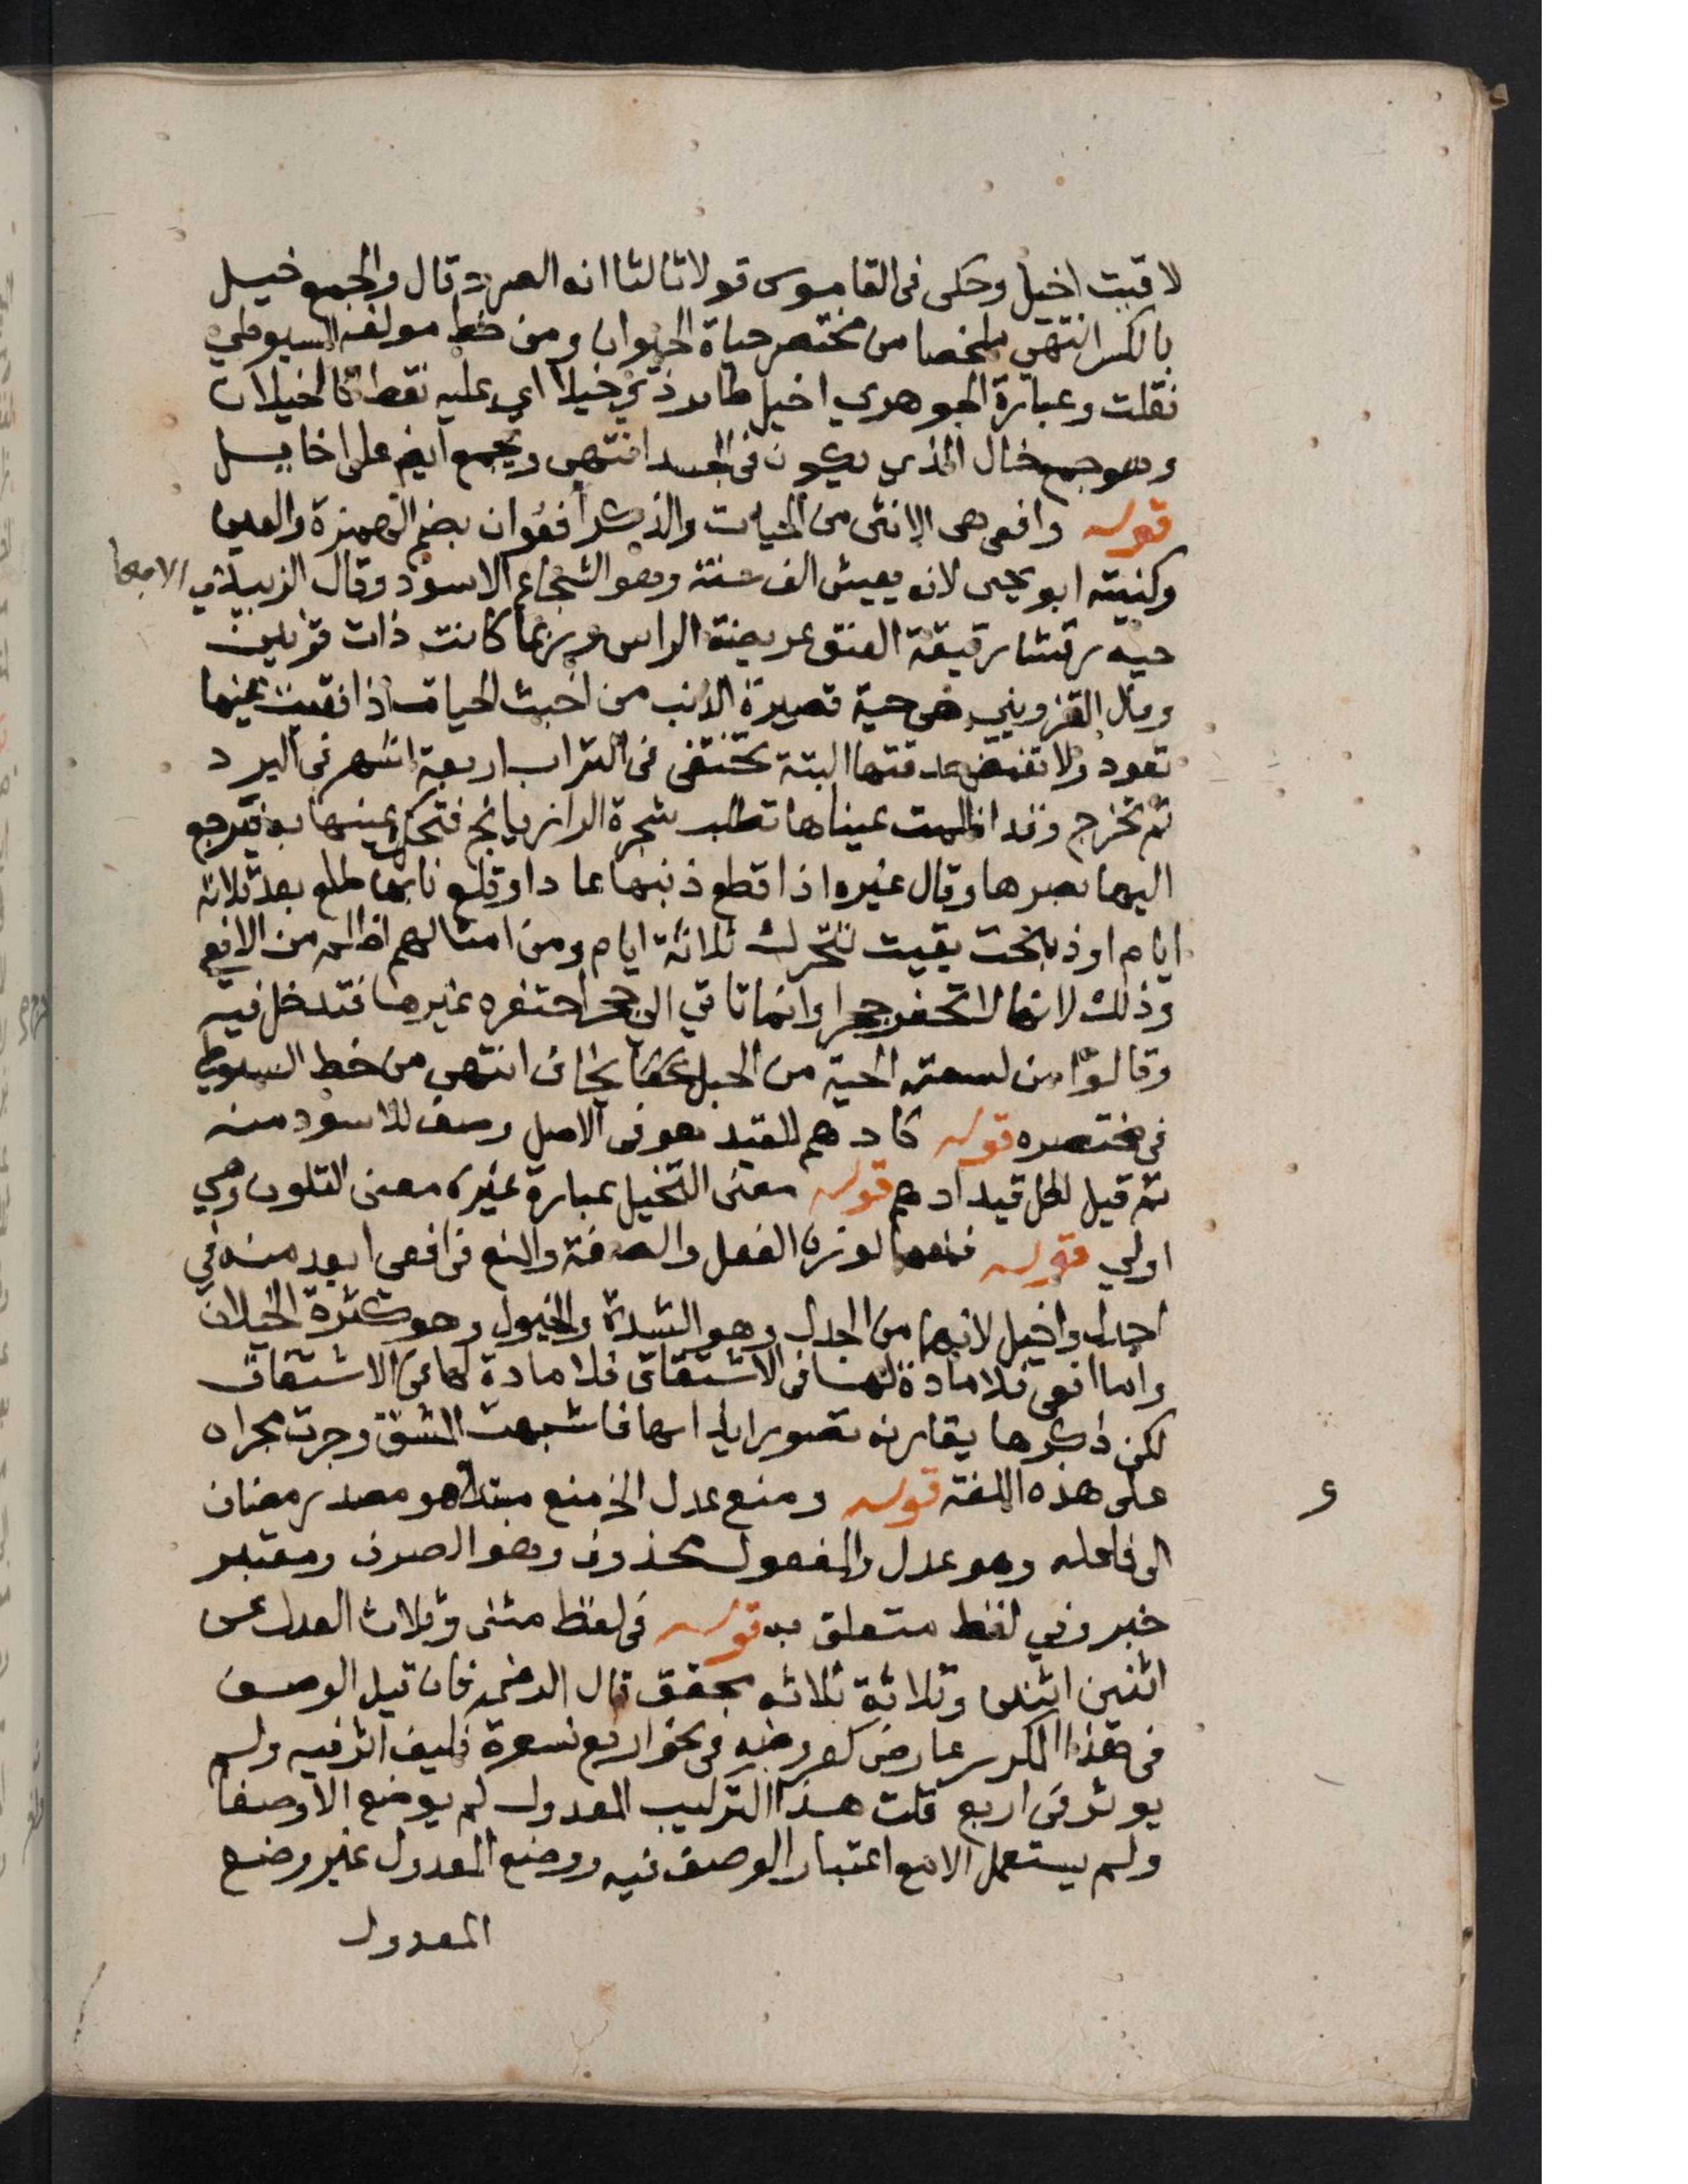 لاقيت اخيل وحكى في القاموس قولا ثالثا انه الصرد قال والجمع خيل
بالكسر انتهى ملخصا من مختصر حياة الحيوان ومن خط مولفه السيوطي
نقلت وعبارة الجوهري اخيل طاير ذي خيلا اي عليه نقط كالخيلان
وهو جمع خال الذي يكون في الجسد انتهى ويجمع ايضا على اخايل
قوله وافعى هي الانثى من الحيات والذكر أفعُوان بضم الهمزة والعين
وكنيته ابو يحيى لانه يعيش الف سنة وهو الشجاع الاسود وقال الزبيدي الافعا
حية رقشا رقيقة العنق عريضة الراس وربما كانت ذات قرنين
وقال القزويني هي حية قصيرة الذنب من اخبث الحيات اذا فقيت عينها
تعود ولا تغمض حدقتها البتة تختفى في التراب اربعة اشهر في البرد
ثم تخرج وقد اظلمت عيناها تطلب شجرة الرازيانج فتحك عينها به فيرجع
اليها بصرها وقال غيره اذا قطع ذنبها عاد او قلع نابها طلع بعد ثلاثة
ايام او ذبحت بقيت تتحرك ثلاثة ايام ومن امثالهم اظلم من الافعى
وذلك لانها لا تحفر جحرا وانما تاتي الى جحر احتفره غيرها فتدخل فيه
وقالوا من لسعته الحية من الحبل يخاف انتهى من خط السيوطي
في مختصره قوله كادهم للقيد هو في الاصل وصف للاسود منه
ثم قيل لكل قيد ادهم قوله معنى التخيل عبارة غيره معنى التلون وهي
اولى قوله لوزن الفعل والصفة والمنع في افعى ابعد منه في
اجدل واخيل لانهما من الجدل وهو الشدة والخيول وهو كثرة الخيلان
واما افعى فلا مادة لها في الاشتقاق فلا مادة لها في الاشتقاق
لكن ذكرها يقارنه تصور ايذائها فاشبهت المشتق وجرت مجراه
على هذه اللغة قوله ومنع عدل الخ منع مبتدا هو مصدر مضاف
الى فاعله وهو عدل والمفعول محذوف وهو الصرف ومعتبر
خبر وفي لفظ متعلق به قوله في لفظ مثنى وثلاث العدل عن
اثنين اثنين وثلاثة ثلاثة محقق قال الرضي فان قيل الوصف
في هذا المكرر عارض كعروضه في نحو اربع نسوة فكيف اثر فيه ولم
يوثر في اربع قلت هذا التركيب المعدول لم يوضع الا وصفا
ولم يستعمل الا مع اعتبار الوصف فيه ووضع المعدول غير وضع
المعدول